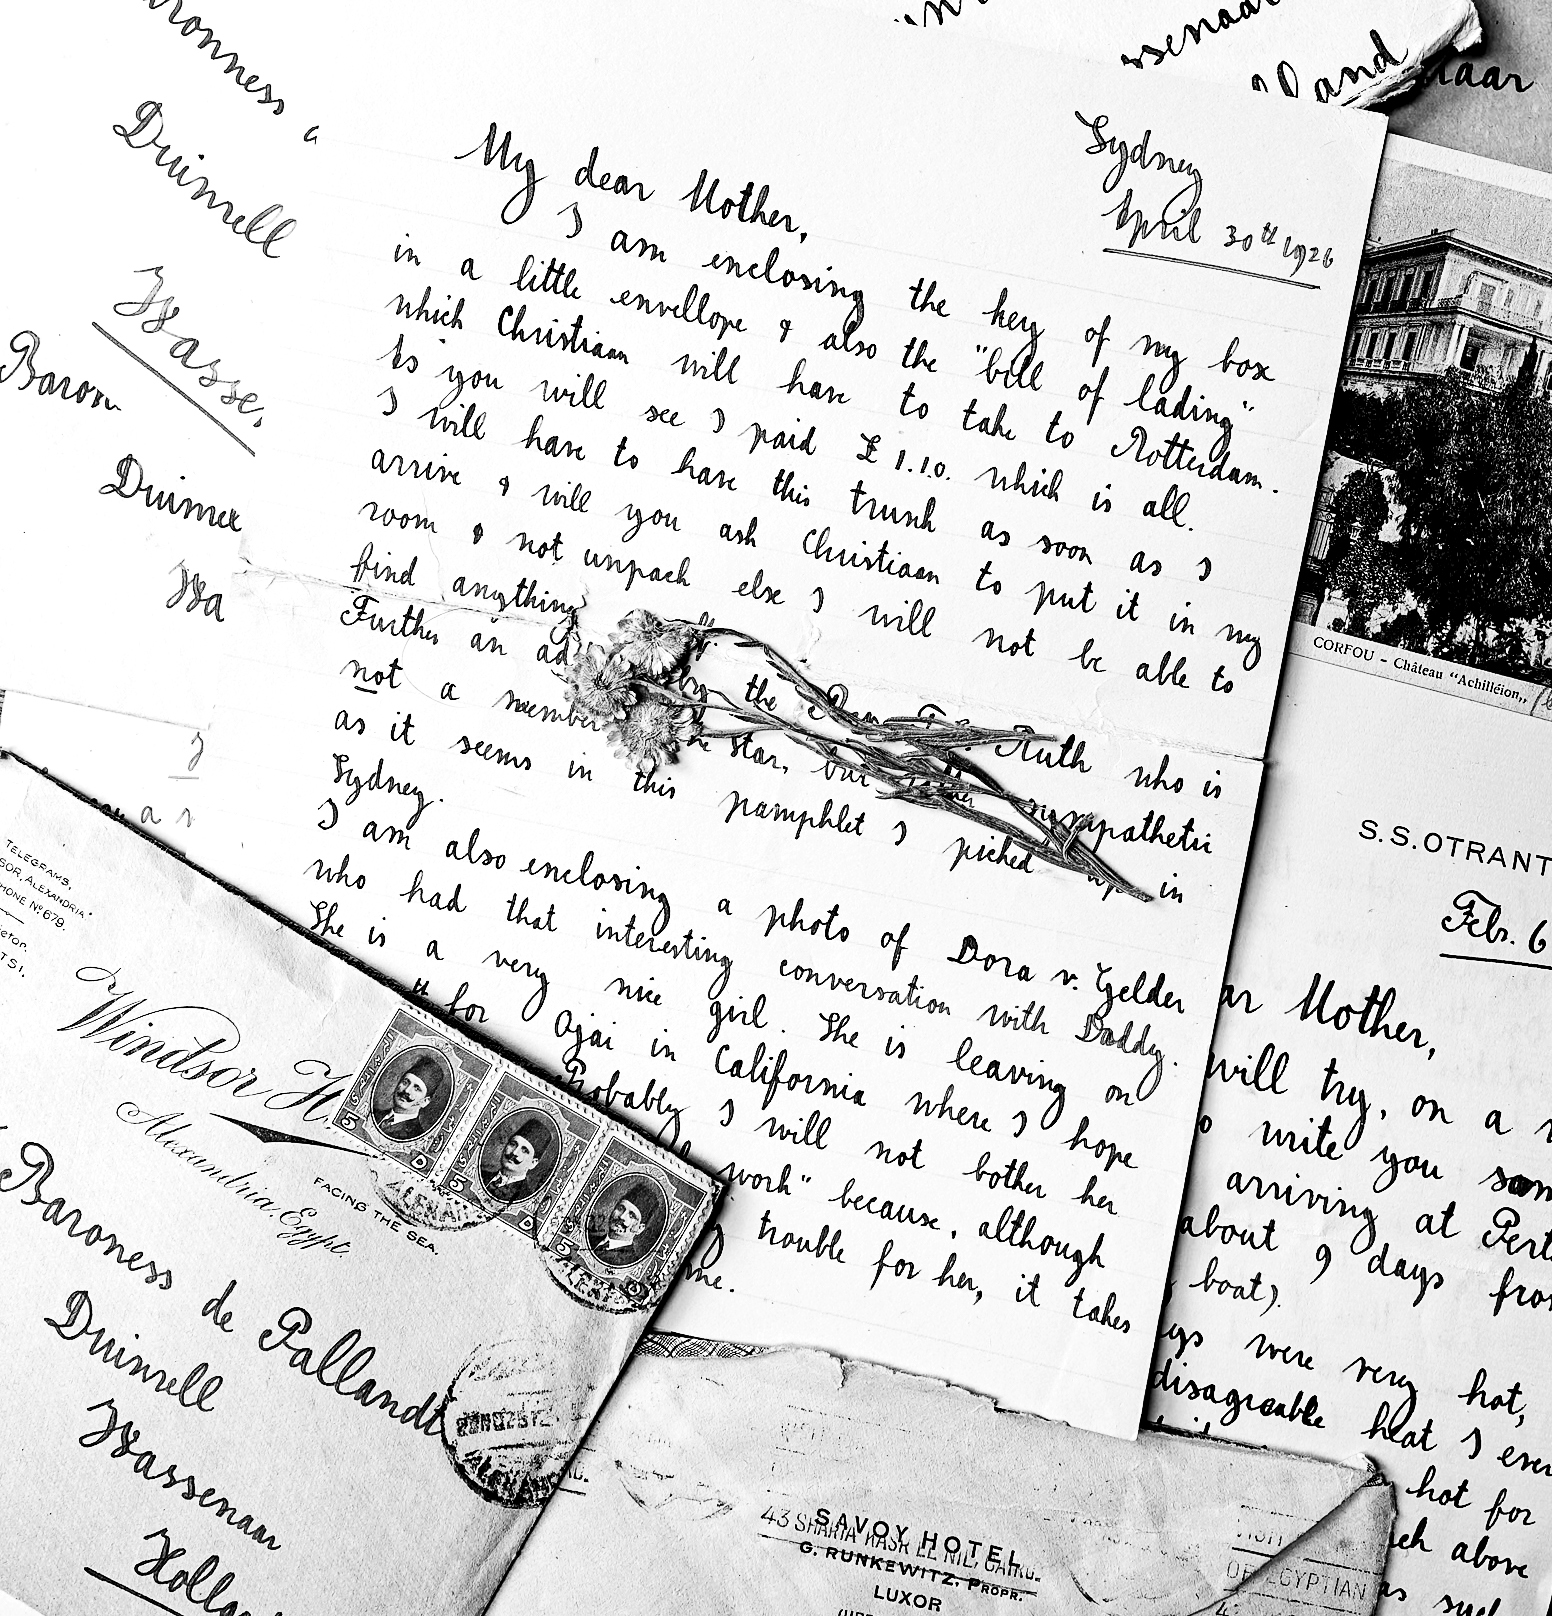 aronness
Duinrell
Wasse
Baron
Duinre
Wa
ssenaar
lland
naar
Sydney
April 30th 1926
My dear Mother,
I am enclosing the key of my box
in a little envellope & also the "bill of lading"
which Christiaan will have to take to Rotterdam.
As you will see I paid £ 1.1.0. which is all.
I will have to have this trunk as soon as I
arrive & will you ask Christiaan to put it in my
room & not unpack else I will not be able to
find anything
Further an ad by the Ruth who is
not a member star, but rather sympathetic
as it seems in this pamphlet I picked up in
Sydney.
I am also enclosing a photo of Dora v. Gelder
who had that interesting conversation with Daddy.
She is a very nice girl. She is leaving on
for Ojai in California where I hope
Probably I will not bother her
work" because, although
trouble for her, it takes
me.
CORFOU - Château "Achilléion„
S.S. OTRANT
Febr. 6
ar Mother,
will try, on a
o write you som
arriving at Pert
about 9 days from
boat).
ys were very hot,
disagreable heat I ever
hot for
ch above
as such
TELEGRAMS,
SOR, ALEXANDRIA"
PHONE No 679.
Windsor H.
Alexandria. Egypt.
FACING THE SEA.
5
5
5
Baroness de Pallandt
Duinrell
Wassenaar
Holla
SAVOY HOTEL
43 SHARIA KASR EL NIL, CAIRO.
G. RUNKEWITZ, PROPR.
LUXOR
VISIT
EGYPTIAN